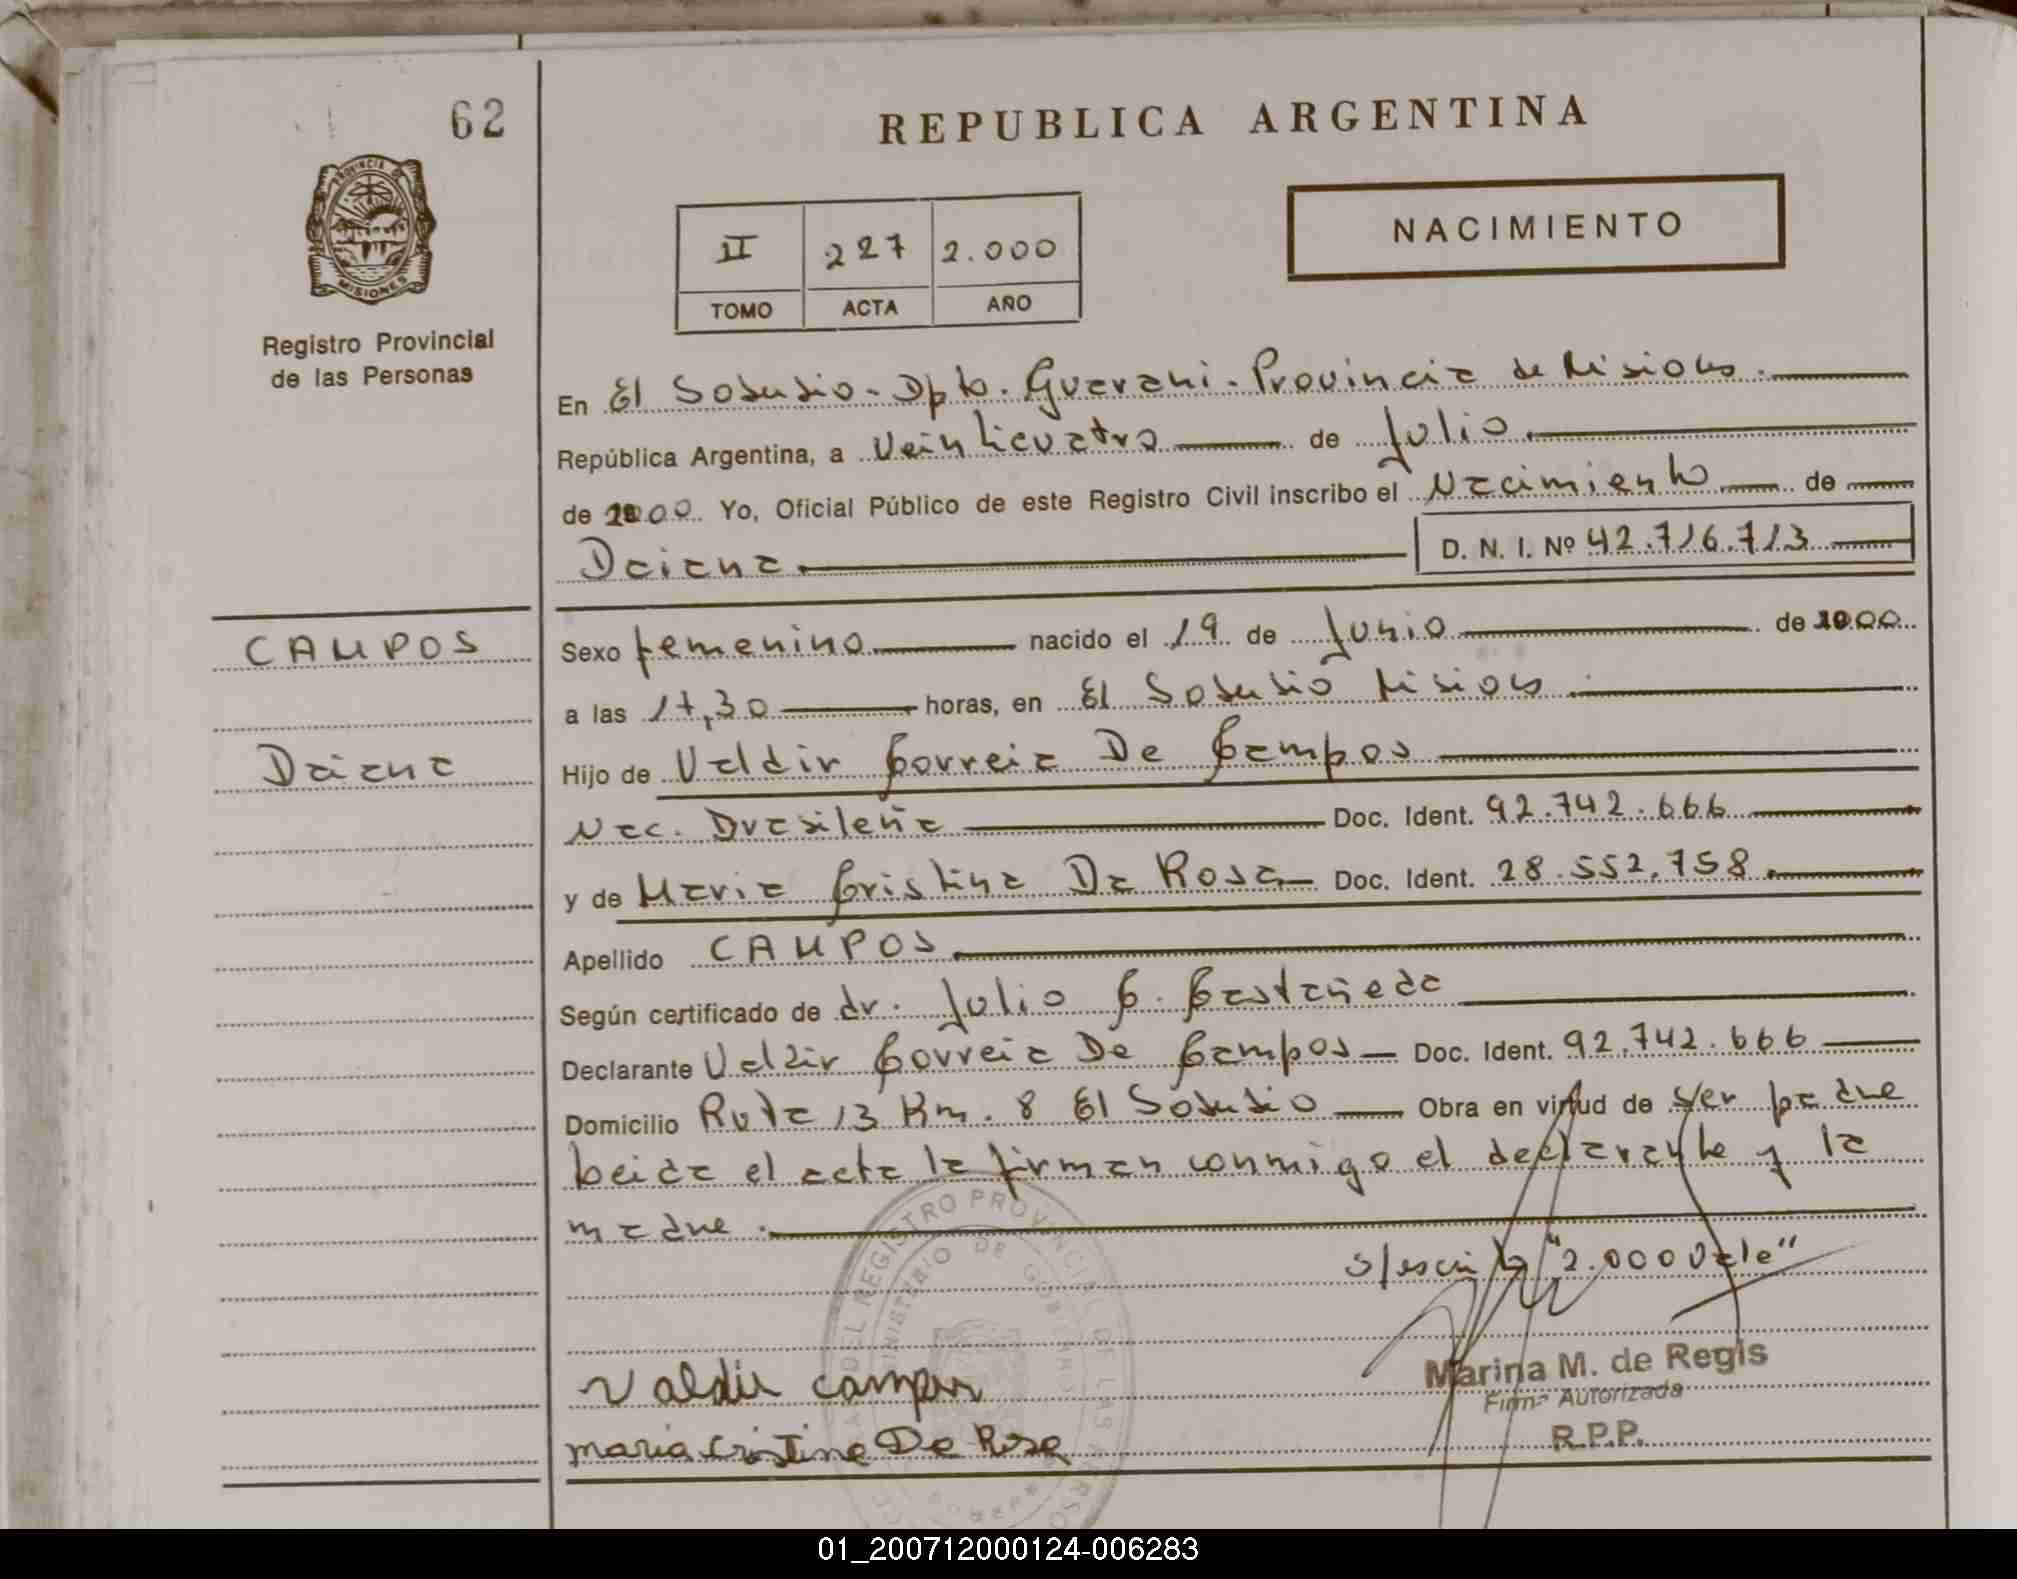 62
PROVINCIA DE
MISIONES
Registro Provincial
de las Personas
REPUBLICA ARGENTINA
II 227 2.000
TOMO ACTA AÑO
NACIMIENTO
En El Soberbio - Dpto. Guarani - Provincia de Misiones.
República Argentina, a Veinticuatro de Julio
de 2000 Yo, Oficial Público de este Registro Civil inscribo el Nacimiento de
Daiana D. N. I. Nº 42.716.713
CAMPOS
Daiana
Sexo femenino nacido el 19 de Junio de 2000
a las 17,30 horas, en El Soberbio Misiones
Hijo de Valdir Correia De Campos
Nac. Brasileña Doc. Ident. 92.742.666
y de Maria Cristina Da Rosa Doc. Ident. 28.552.758
Apellido CAMPOS
Según certificado de dr. Julio C. Castañeda
Declarante Valdir Correia De Campos Doc. Ident. 92.742.666
Domicilio Ruta 13 Km. 8 El Soberbio Obra en virtud de ser padre
Leida el acta la firman conmigo el declarante y la
madre.
s/escrito "2.000 Vale"
REGISTRO PROVINCIAL DE LAS
MINISTERIO DE GOBIERNO
Valdir campos
maria Cristina Da Rosa
Marina M. de Regis
Firma Autorizada
R.P.P.
01_200712000124-006283